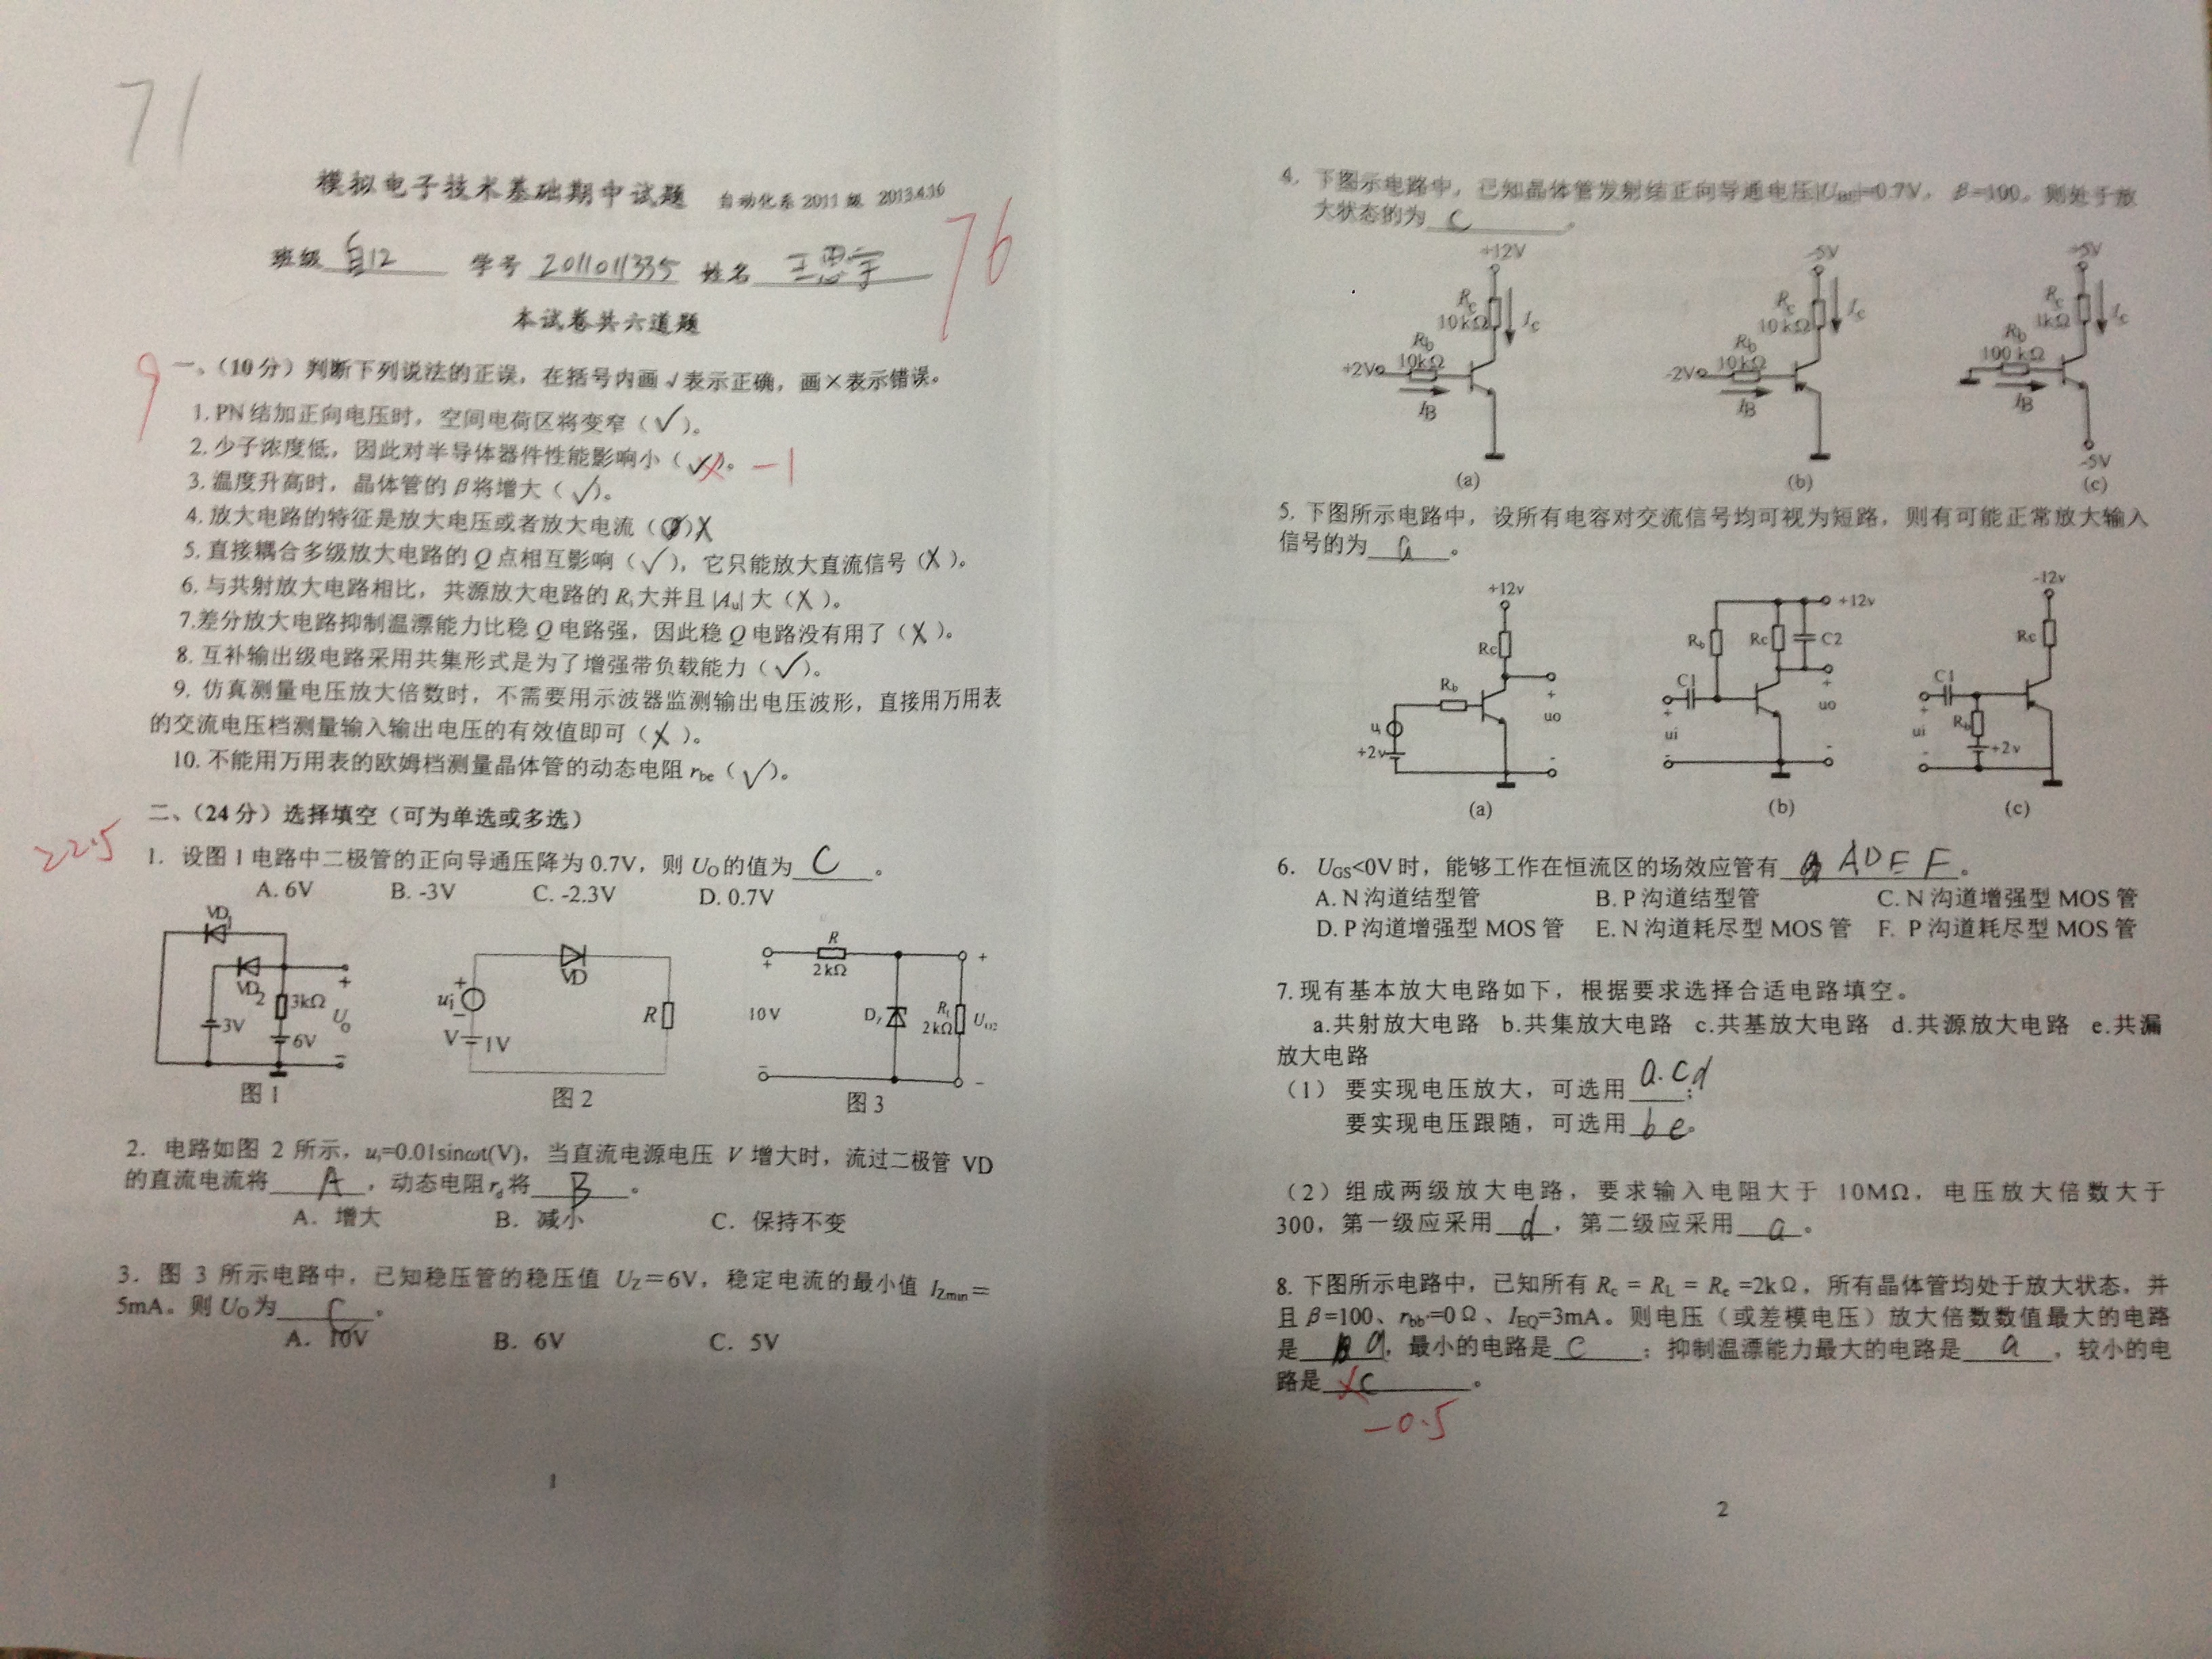 71
模拟电子技术基础期中试题 自动化系 2011 级 2013.4.16
76
班级 自12 学号 2011011335 姓名 王思宇
本试卷共六道题
9
一、(10分) 判断下列说法的正误，在括号内画√表示正确，画×表示错误。
1. PN 结加正向电压时，空间电荷区将变窄（√）。
2. 少子浓度低，因此对半导体器件性能影响小（√）。 -1
3. 温度升高时，晶体管的 β 将增大（√）。
4. 放大电路的特征是放大电压或者放大电流（ ）X
5. 直接耦合多级放大电路的 Q 点相互影响（√），它只能放大直流信号（X）。
6. 与共射放大电路相比，共源放大电路的 Ri 大并且 |Au| 大（X）。
7.差分放大电路抑制温漂能力比稳 Q 电路强，因此稳 Q 电路没有用了（X）。
8. 互补输出级电路采用共集形式是为了增强带负载能力（√）。
9. 仿真测量电压放大倍数时，不需要用示波器监测输出电压波形，直接用万用表
的交流电压档测量输入输出电压的有效值即可（X）。
10. 不能用万用表的欧姆档测量晶体管的动态电阻 rbe（√）。
二、(24分) 选择填空（可为单选或多选）
22.5
1. 设图 1 电路中二极管的正向导通压降为 0.7V，则 UO 的值为 C 。
A. 6V B. -3V C. -2.3V D. 0.7V
VD1
VD2
3kΩ
3V
6V
UO
+
-
图 1
VD
ui
+
-
R
V 1V
图 2
R
2kΩ
+
10V
DZ
RL
2kΩ
UO2
-
图 3
2. 电路如图 2 所示，ui=0.01sinωt(V)，当直流电源电压 V 增大时，流过二极管 VD
的直流电流将 A ，动态电阻 rd 将 B 。
A. 增大 B. 减小 C. 保持不变
3. 图 3 所示电路中，已知稳压管的稳压值 UZ＝6V，稳定电流的最小值 IZmin＝
5mA。则 UO 为 C 。
A. 10V B. 6V C. 5V
1
4. 下图示电路中，已知晶体管发射结正向导通电压|UBE|=0.7V，β=100。则处于放
大状态的为 C 。
+12V
Rc
10kΩ
Ic
Rb
+2V 10kΩ
IB
(a)
-5V
Rc
10kΩ
Ic
Rb
-2V 10kΩ
IB
(b)
+5V
Rc
1kΩ
Ic
Rb
100kΩ
IB
-5V
(c)
5. 下图所示电路中，设所有电容对交流信号均可视为短路，则有可能正常放大输入
信号的为 a 。
+12v
Rc
Rb
ui
+2v
+
uo
-
(a)
+12v
Rb Rc C2
C1
+
ui
-
+
uo
-
(b)
-12v
Rc
C1
+
ui
Rb
+2v
-
(c)
6. UGS<0V 时，能够工作在恒流区的场效应管有 ADEF 。
A. N 沟道结型管 B. P 沟道结型管 C. N 沟道增强型 MOS 管
D. P 沟道增强型 MOS 管 E. N 沟道耗尽型 MOS 管 F. P 沟道耗尽型 MOS 管
7. 现有基本放大电路如下，根据要求选择合适电路填空。
a.共射放大电路 b.共集放大电路 c.共基放大电路 d.共源放大电路 e.共漏
放大电路
（1）要实现电压放大，可选用 a.cd ；
要实现电压跟随，可选用 be 。
（2）组成两级放大电路，要求输入电阻大于 10MΩ，电压放大倍数大于
300，第一级应采用 d ，第二级应采用 a 。
8. 下图所示电路中，已知所有 Rc = RL = Re =2kΩ，所有晶体管均处于放大状态，并
且 β=100、rbb'=0Ω、IEQ=3mA。则电压（或差模电压）放大倍数数值最大的电路
是 a ，最小的电路是 c ；抑制温漂能力最大的电路是 a ，较小的电
路是 c 。
-0.5
2